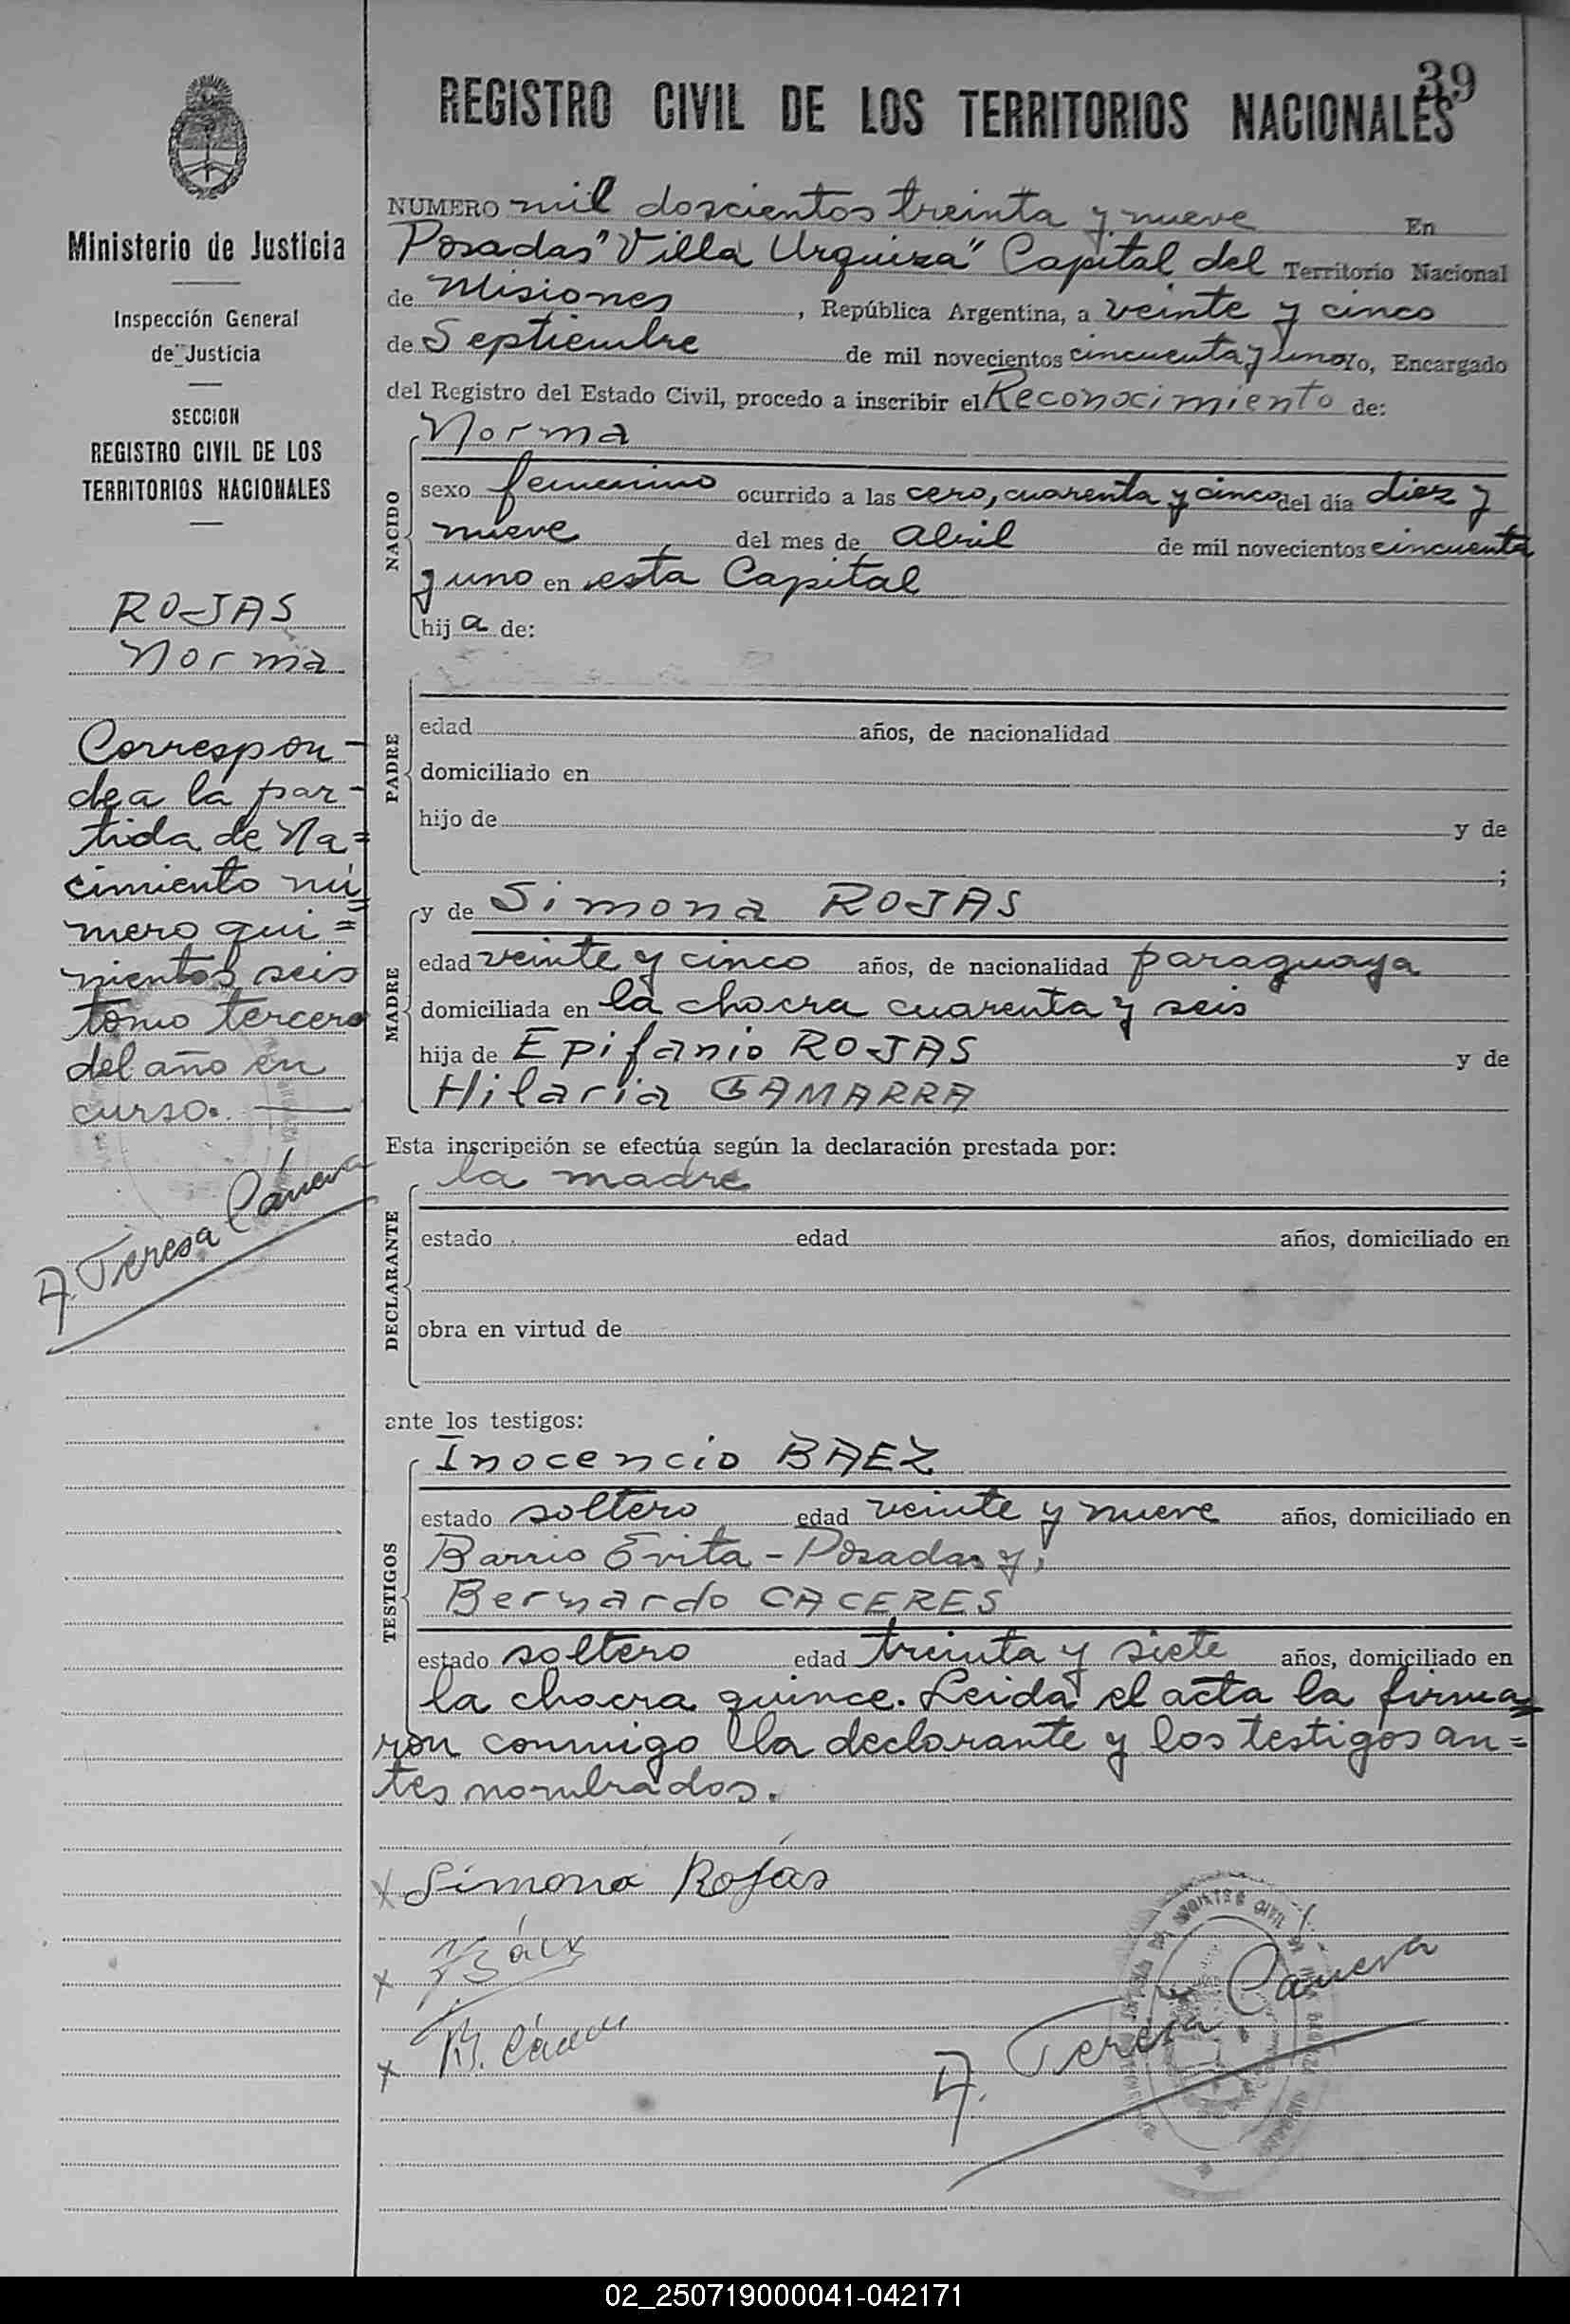 39
REGISTRO CIVIL DE LOS TERRITORIOS NACIONALES
Ministerio de Justicia
Inspección General
de Justicia
SECCION
REGISTRO CIVIL DE LOS
TERRITORIOS NACIONALES
ROJAS
Norma
Correspon-
de a la par-
tida de Na=
cimiento nú
mero qui=
nientos seis
tomo tercero
del año en
curso.
A. Teresa Cáneva
NUMERO mil doscientos treinta y nueve En
Posadas "Villa Urquiza" Capital del Territorio Nacional
de Misiones, República Argentina, a veinte y cinco
de Septiembre de mil novecientos cincuenta y uno Yo, Encargado
del Registro del Estado Civil, procedo a inscribir el Reconocimiento de:
NACIDO
Norma
sexo femenino ocurrido a las cero, cuarenta y cinco del día diez y
nueve del mes de Abril de mil novecientos cincuenta
y uno en esta Capital
hija de:
PADRE
edad años, de nacionalidad
domiciliado en
hijo de y de
;
MADRE
y de Simona ROJAS
edad veinte y cinco años, de nacionalidad paraguaya
domiciliada en la chacra cuarenta y seis
hija de Epifanio ROJAS y de
Hilaria GAMARRA
Esta inscripción se efectúa según la declaración prestada por:
DECLARANTE
la madre
estado edad años, domiciliado en
obra en virtud de
ante los testigos:
TESTIGOS
Inocencio BAEZ
estado soltero edad veinte y nueve años, domiciliado en
Barrio Evita - Posadas y,
Bernardo CACERES
estado soltero edad treinta y siete años, domiciliado en
la chacra quince. Leida el acta la firma=
ron conmigo la declarante y los testigos an=
tes nombrados.
x Simona Rojas
x Báez
x B. Cáceres
A. Teresa Cáneva
02_250719000041-042171